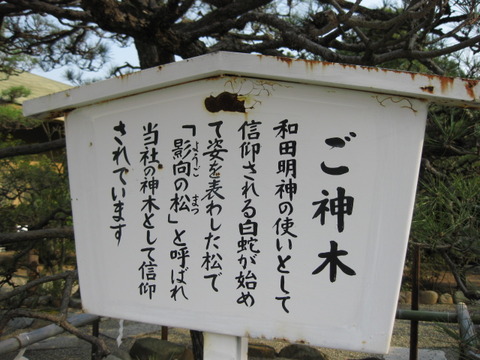 ご神木
和田明神の使いとして
信仰される白蛇が始め
て姿を表わした松で
「影向の松」と呼ばれ
ようご　まつ
当社の神木として信仰
されています